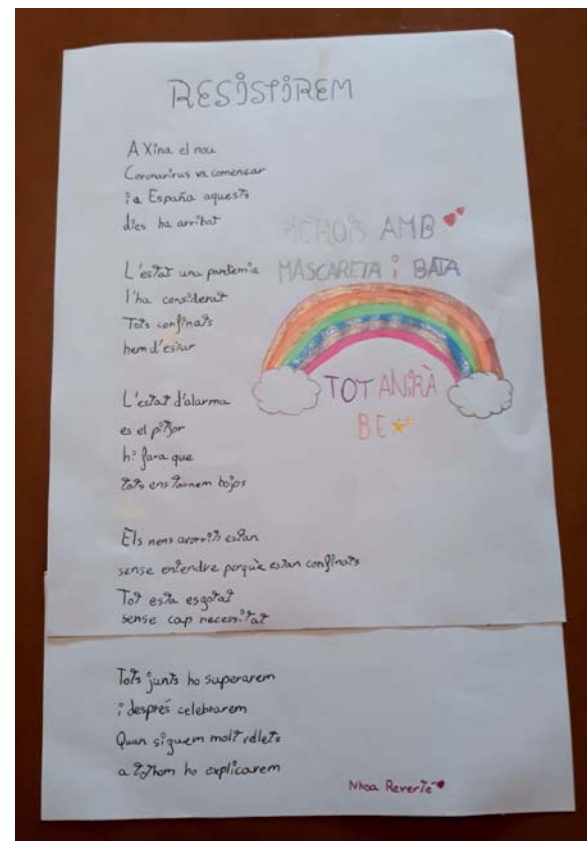 RESISTIREM
A Xina el nou
Coronavirus va començar
i a España aquests
dies ha arribat
L'estat una pandemia
l'ha considerat
Tots confinats
hem d'estar
L'estat d'alarma
es el pitjor
hi fara que
tots ens tornem bojos
Els nens avorrits estan
sense entendre perquè estan confinats
Tot esta esgotat
sense cap necessitat
Tots junts ho superarem
i després celebrarem
Quan siguem molt vellets
a tothom ho explicarem
HEROIS AMB
MASCARETA i BATA
TOT ANIRÀ
BE
Nhoa Reverté